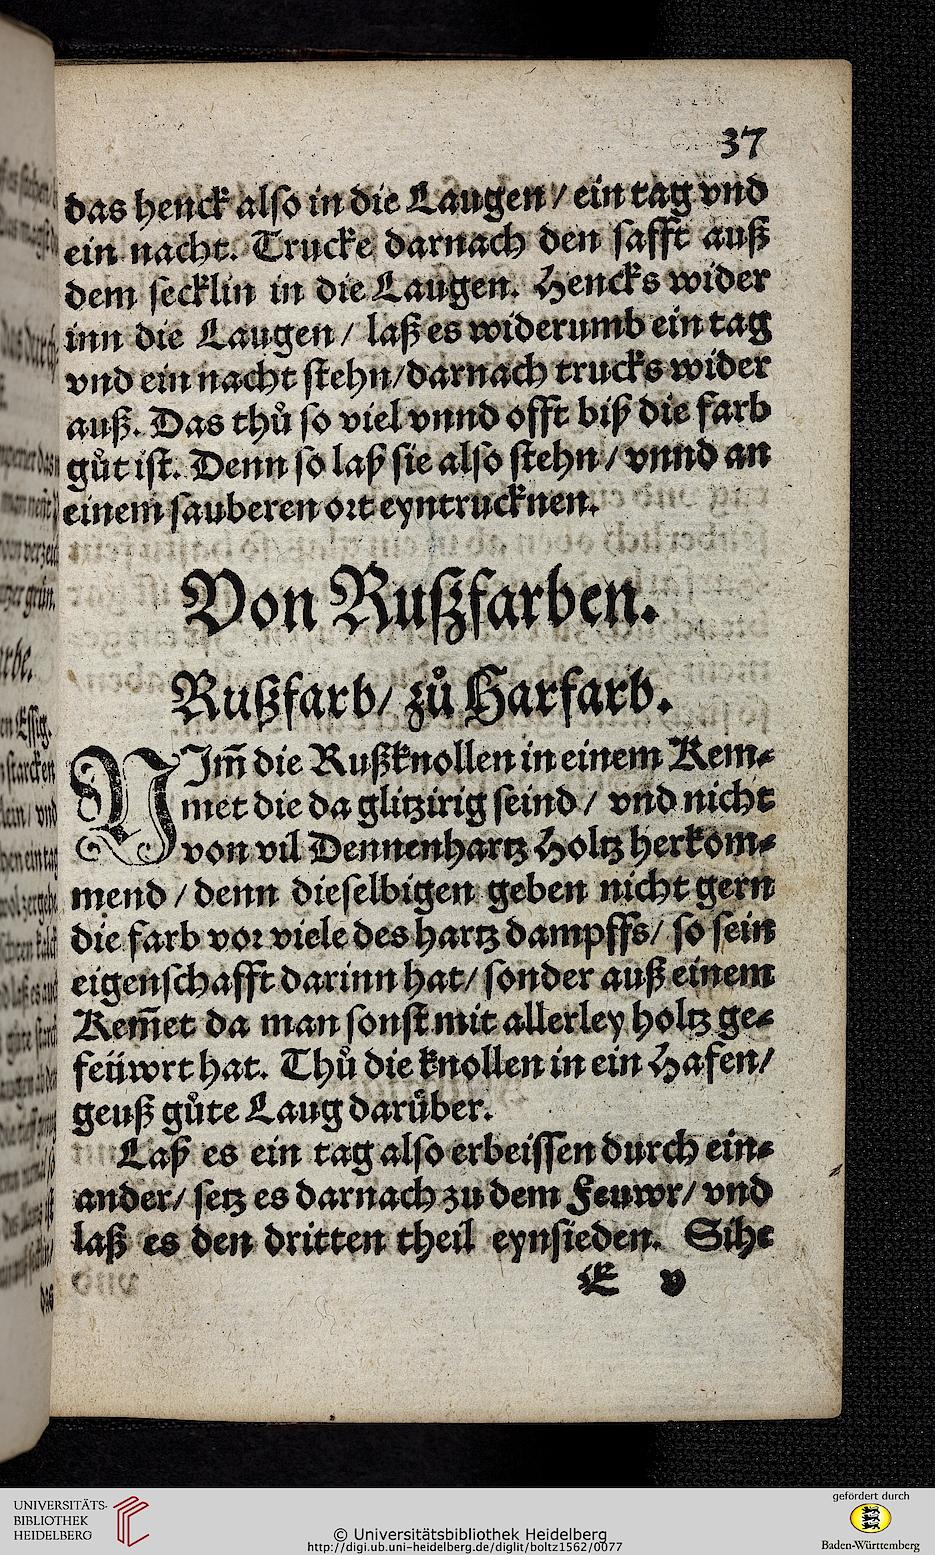 37
das henck also in die Laugen / ein tag vnd
ein nacht. Trucke darnach den safft auß
dem secklin in die Laugen. Hencks wider
inn die Laugen / laß es widerumb ein tag
vnd ein nacht stehn / darnach trucks wider
auß. Das thů so viel vnnd offt biß die farb
gůt ist. Denn so laß sie also stehn / vnnd an
einem sauberen ort eyntrucknen.
Von Rußfarben.
Rußfarb / zů Harfarb.
NJm̃ die Rußknollen in einem Kem-
met die da glitzirig seind / vnd nicht
von vil Dennenhartz Holtz herkom-
mend / denn dieselbigen geben nicht gern
die farb vor viele des hartz dampffs / so sein
eigenschafft darinn hat / sonder auß einem
Kem̃et da man sonst mit allerley holtz ge-
feüwrt hat. Thů die knollen in ein Hafen /
geuß gůte Laug darüber.
Laß es ein tag also erbeissen durch ein-
ander / setz es darnach zu dem Feuwr / vnd
laß es den dritten theil eynsieden. Sihe
E v
UNIVERSITÄTS-
BIBLIOTHEK
HEIDELBERG
© Universitätsbibliothek Heidelberg
http://digi.ub.uni-heidelberg.de/diglit/boltz1562/0077
gefördert durch
Baden-Württemberg